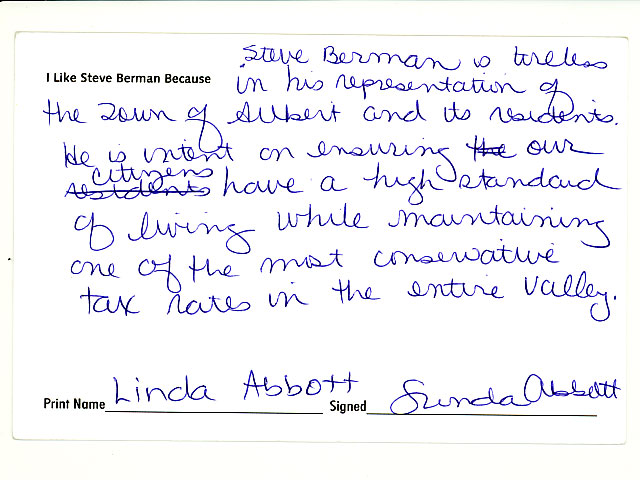 Steve Berman is tireless
I Like Steve Berman Because in his representation of
the Town of Gilbert and its residents.
He is intent on ensuring the our
citizens
residents have a high standard
of living while maintaining
one of the most conservative
tax rates in the entire valley.
Print Name Linda Abbott Signed Linda Abbott